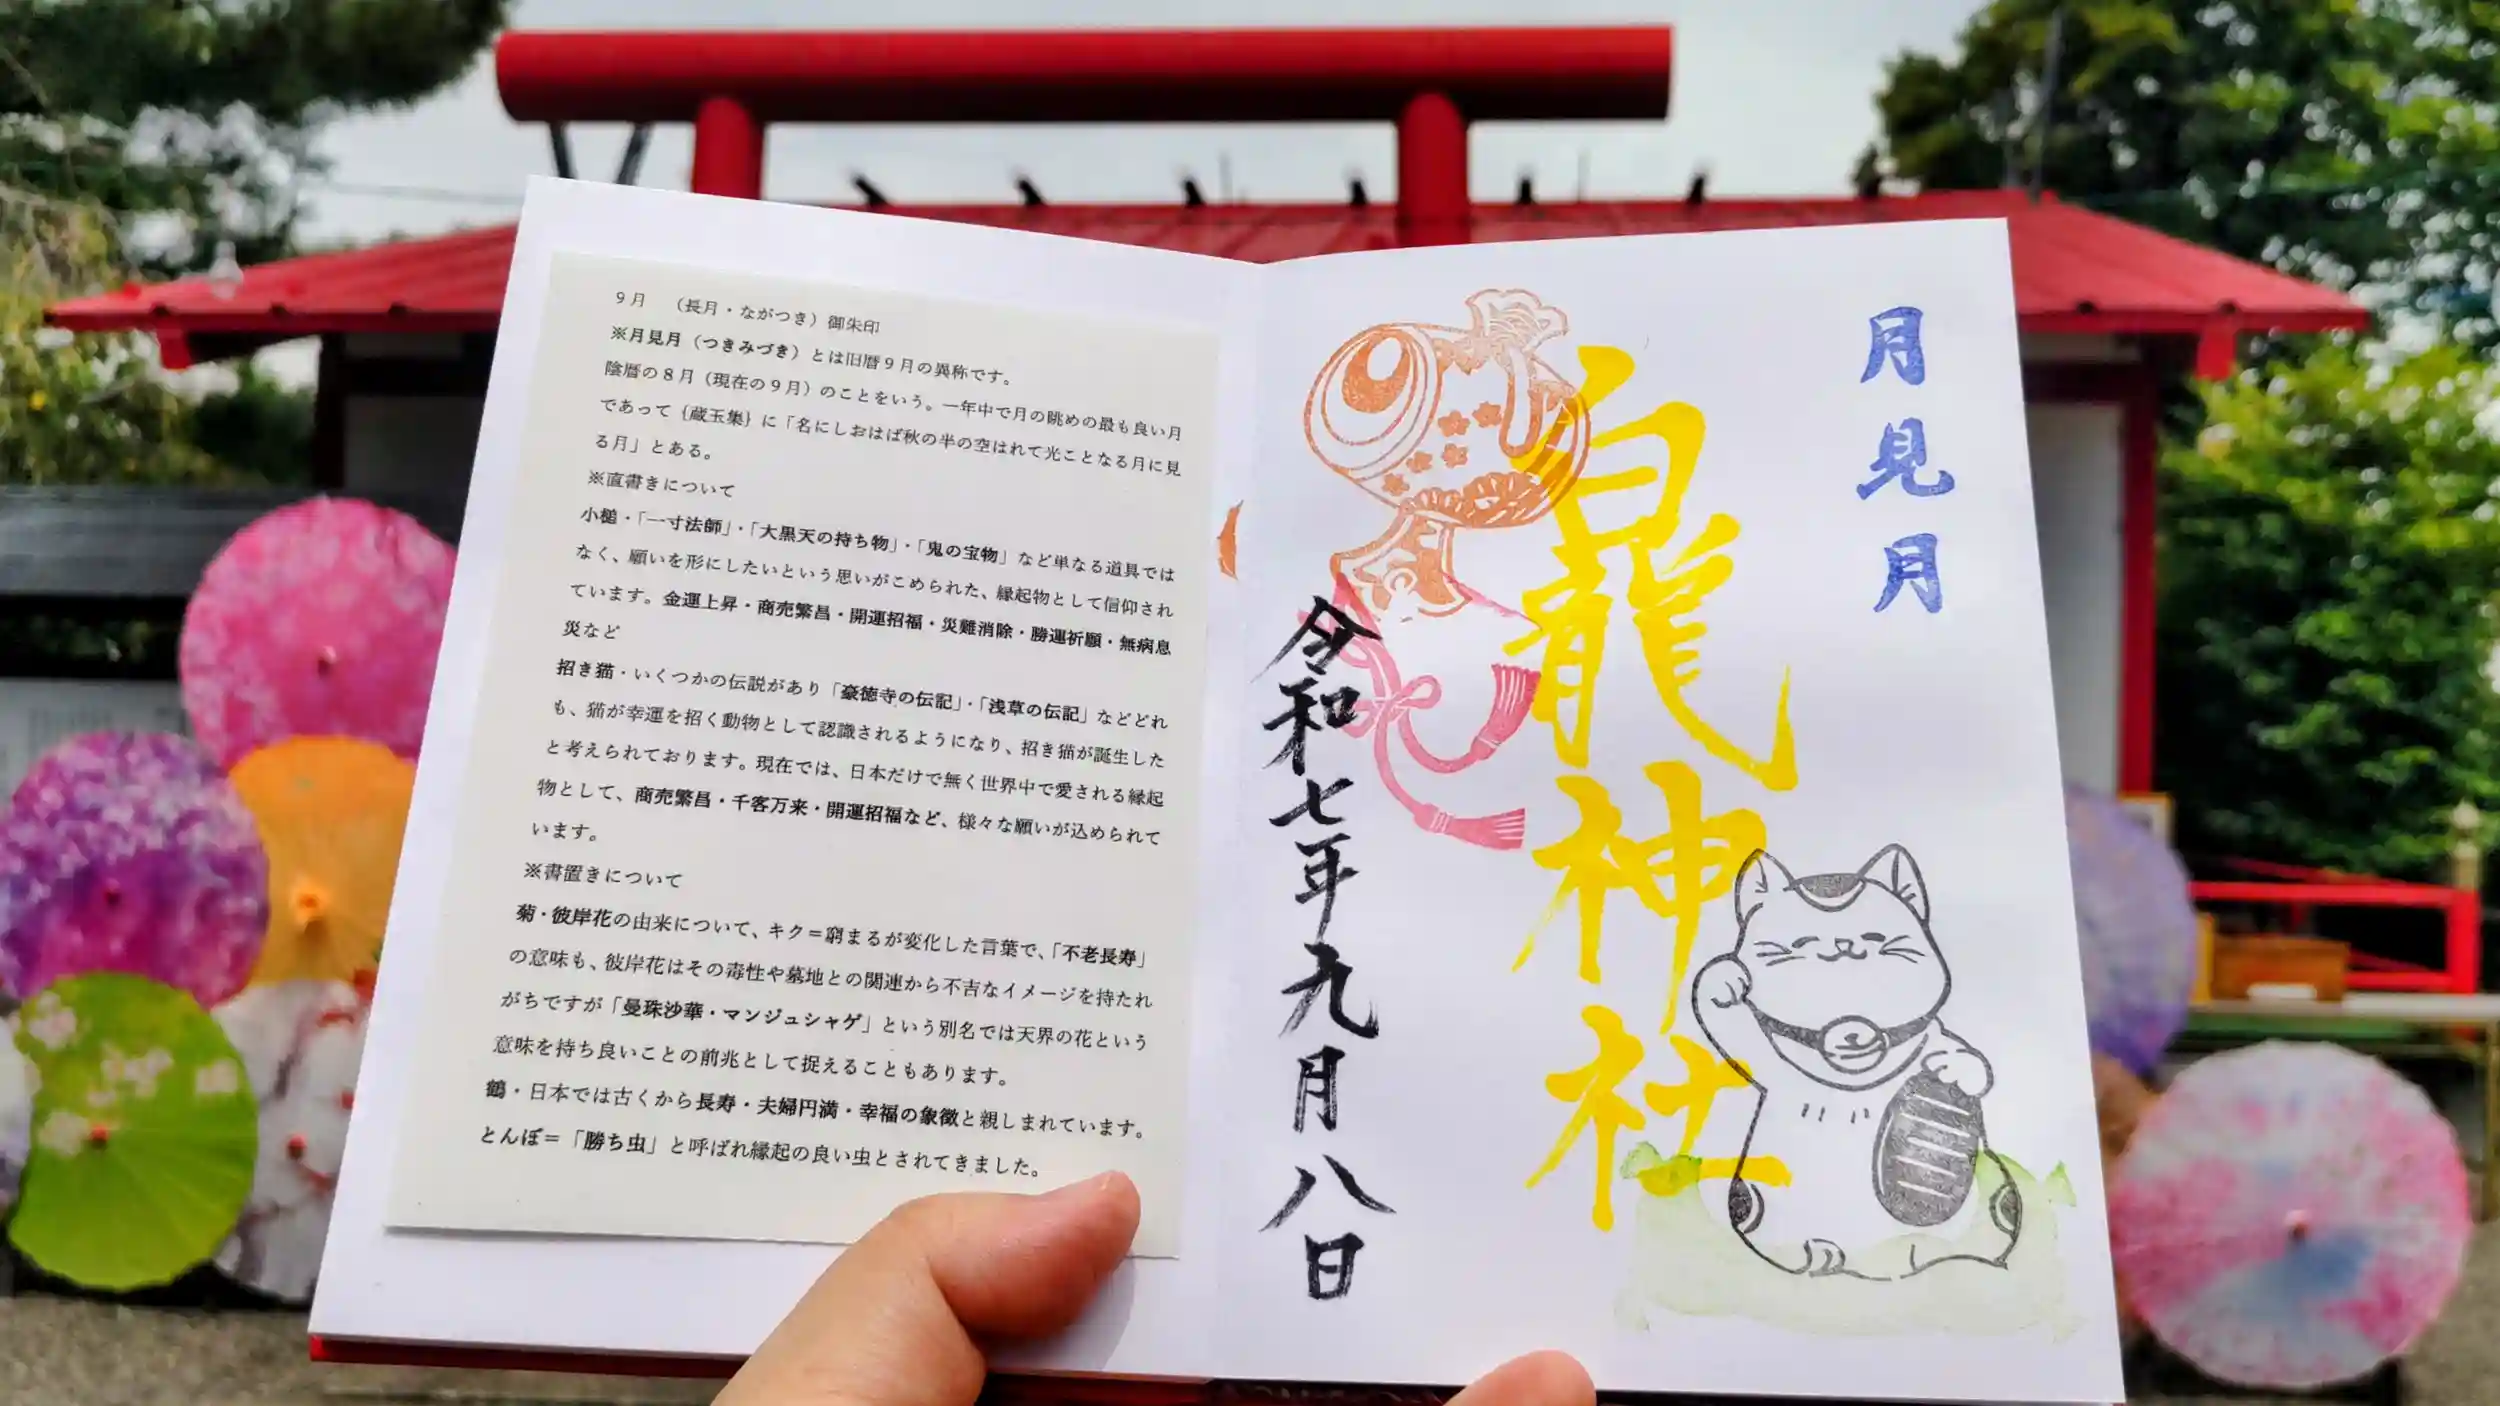 9月　（長月・ながつき）御朱印
※月見月（つきみづき）とは旧暦9月の異称です。
陰暦の8月（現在の9月）のことをいう。一年中で月の眺めの最も良い月
であって{蔵玉集}に「名にしおはば秋の半の空はれて光ことなる月に見
る月」とある。
※直書きについて
小槌・「一寸法師」・「大黒天の持ち物」・「鬼の宝物」など単なる道具では
なく、願いを形にしたいという思いがこめられた、縁起物として信仰され
ています。金運上昇・商売繁昌・開運招福・災難消除・勝運祈願・無病息
災など
招き猫・いくつかの伝説があり「豪徳寺の伝記」・「浅草の伝記」などどれ
も、猫が幸運を招く動物として認識されるようになり、招き猫が誕生した
と考えられております。現在では、日本だけで無く世界中で愛される縁起
物として、商売繁昌・千客万来・開運招福など、様々な願いが込められて
います。
※書置きについて
菊・彼岸花の由来について、キク＝窮まるが変化した言葉で、「不老長寿」
の意味も、彼岸花はその毒性や墓地との関連から不吉なイメージを持たれ
がちですが「曼珠沙華・マンジュシャゲ」という別名では天界の花という
意味を持ち良いことの前兆として捉えることもあります。
鶴・日本では古くから長寿・夫婦円満・幸福の象徴と親しまれています。
とんぼ＝「勝ち虫」と呼ばれ縁起の良い虫とされてきました。
月見月
白龍神社
令和七年九月八日